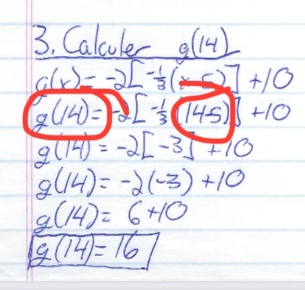 3. Calculer g(14)
g(x) = -2[-1/3(x-5)] +10
g(14) = -2[-1/3(14-5)] +10
g(14) = -2[-3] +10
g(14) = -2(-3) +10
g(14) = 6+10
g(14) = 16